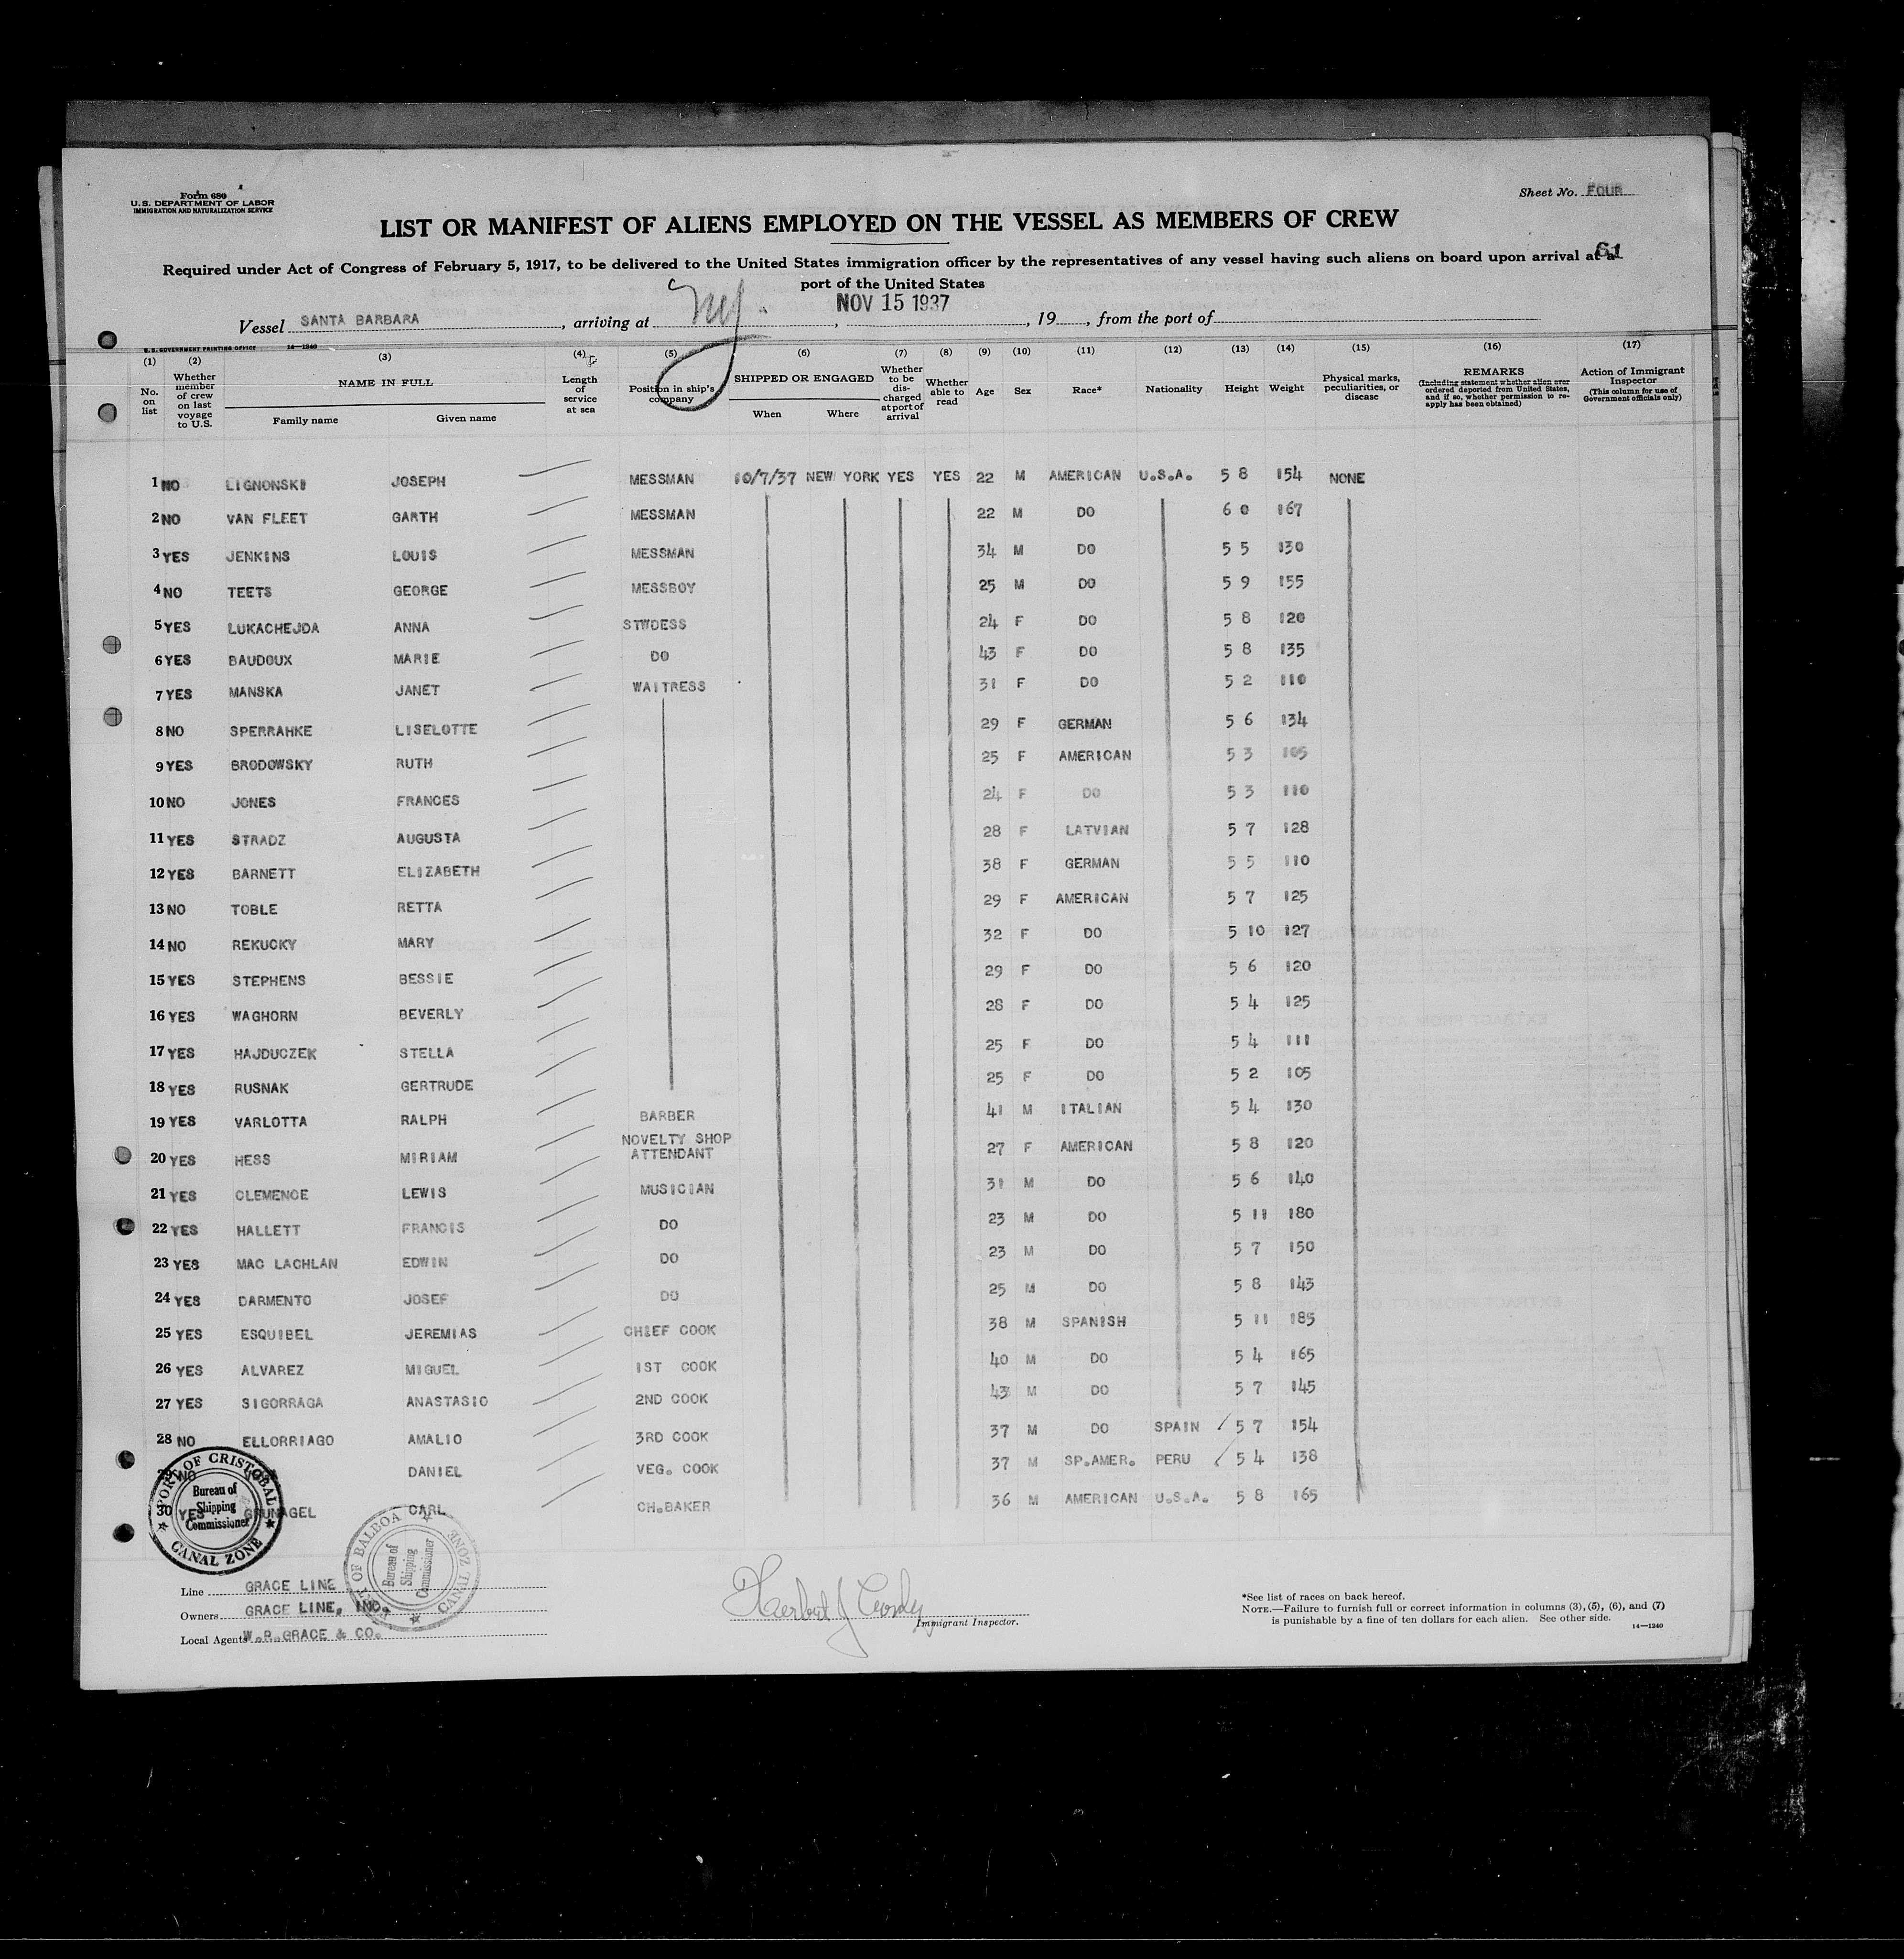 Form 680
U.S. DEPARTMENT OF LABOR
IMMIGRATION AND NATURALIZATION SERVICE
Sheet No. FOUR
LIST OR MANIFEST OF ALIENS EMPLOYED ON THE VESSEL AS MEMBERS OF CREW
61
Required under Act of Congress of February 5, 1917, to be delivered to the United States immigration officer by the representatives of any vessel having such aliens on board upon arrival at a
port of the United States
Vessel SANTA BARBARA, arriving at , NOV 15 1937, 19, from the port of
U.S. GOVERNMENT PRINTING OFFICE 14—1240
(1) (2) (3) (4) (5) (6) (7) (8) (9) (10) (11) (12) (13) (14) (15) (16) (17)
No. on list
Whether member of crew on last voyage to U.S.
NAME IN FULL
Family name Given name
Length of service at sea
Position in ship's company
SHIPPED OR ENGAGED
When Where
Whether to be discharged at port of arrival
Whether able to read
Age Sex Race* Nationality Height Weight
Physical marks, peculiarities, or disease
REMARKS
(Including statement whether alien ever ordered deported from United States, and if so, whether permission to re-apply has been obtained)
Action of Immigrant Inspector
(This column for use of Government officials only)
1 NO LIGNONSKI JOSEPH MESSMAN 10/7/37 NEW YORK YES YES 22 M AMERICAN U.S.A. 5 8 154 NONE
2 NO VAN FLEET GARTH MESSMAN 22 M DO 6 0 167
3 YES JENKINS LOUIS MESSMAN 34 M DO 5 5 130
4 NO TEETS GEORGE MESSBOY 25 M DO 5 9 155
5 YES LUKACHEJDA ANNA STWDESS 24 F DO 5 8 120
6 YES BAUDOUX MARIE DO 43 F DO 5 8 135
7 YES MANSKA JANET WAITRESS 31 F DO 5 2 110
8 NO SPERRAHKE LISELOTTE 29 F GERMAN 5 6 134
9 YES BRODOWSKY RUTH 25 F AMERICAN 5 3 105
10 NO JONES FRANCES 24 F DO 5 3 110
11 YES STRADZ AUGUSTA 28 F LATVIAN 5 7 128
12 YES BARNETT ELIZABETH 38 F GERMAN 5 5 110
13 NO TOBLE RETTA 29 F AMERICAN 5 7 125
14 NO REKUCKY MARY 32 F DO 5 10 127
15 YES STEPHENS BESSIE 29 F DO 5 6 120
16 YES WAGHORN BEVERLY 28 F DO 5 4 125
17 YES HAJDUCZEK STELLA 25 F DO 5 4 111
18 YES RUSNAK GERTRUDE 25 F DO 5 2 105
19 YES VARLOTTA RALPH BARBER 41 M ITALIAN 5 4 130
20 YES HESS MIRIAM NOVELTY SHOP ATTENDANT 27 F AMERICAN 5 8 120
21 YES CLEMENCE LEWIS MUSICIAN 31 M DO 5 6 140
22 YES HALLETT FRANCIS DO 23 M DO 5 11 180
23 YES MAC LACHLAN EDWIN DO 23 M DO 5 7 150
24 YES DARMENTO JOSEF DO 25 M DO 5 8 143
25 YES ESQUIBEL JEREMIAS CHIEF COOK 38 M SPANISH 5 11 185
26 YES ALVAREZ MIGUEL 1ST COOK 40 M DO 5 4 165
27 YES SIGORRAGA ANASTASIO 2ND COOK 43 M DO 5 7 145
28 NO ELLORRIAGO AMALIO 3RD COOK 37 M DO SPAIN 5 7 154
NO DANIEL VEG. COOK 37 M SP.AMER. PERU 5 4 138
30 YES GRUNAGEL CARL CH.BAKER 36 M AMERICAN U.S.A. 5 8 165
PORT OF CRISTOBAL
Bureau of Shipping Commissioner
CANAL ZONE
PORT OF BALBOA
Bureau of Shipping Commissioner
CANAL ZONE
Line GRACE LINE
Owners GRACE LINE, INC.
Local Agents W.R.GRACE & CO.
Immigrant Inspector.
*See list of races on back hereof.
NOTE.—Failure to furnish full or correct information in columns (3), (5), (6), and (7)
is punishable by a fine of ten dollars for each alien. See other side.
14—1240